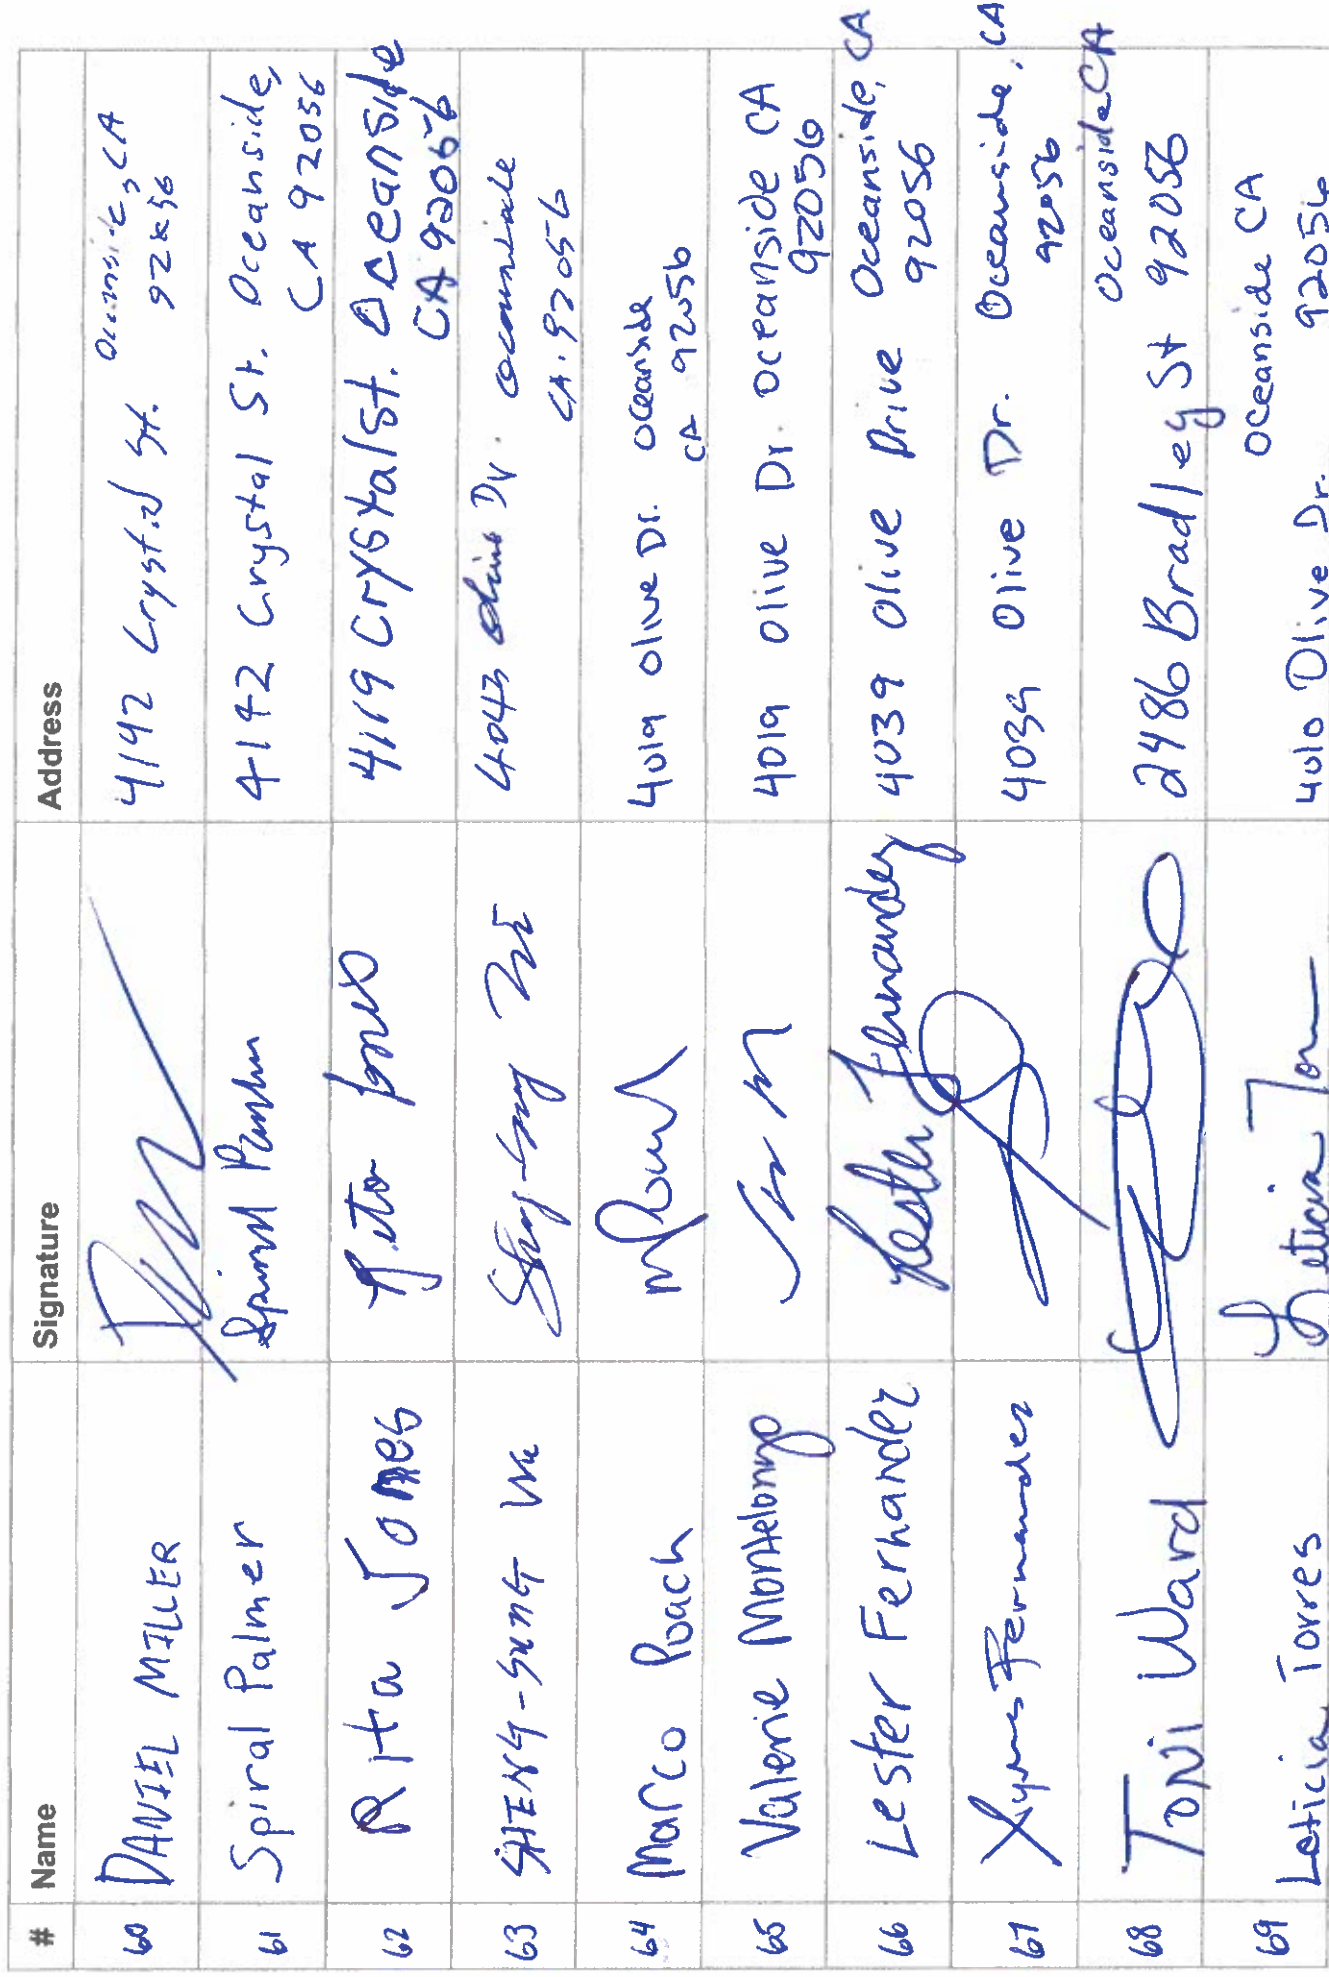 # Name Signature Address
60 DANIEL MILLER 4142 Crystal St. Oceanside, CA
92056
61 Spiral Palmer Spiral Palmer 4142 Crystal St. Oceanside,
CA 92056
62 Rita Jones Rita Jones 4119 Crystal St. Oceanside
CA 92056
63 SHENG-SUNG 4043 Olive Dr. oceanside
CA. 92056
64 Marco Poach 4019 Olive Dr. oceanside
CA 92056
65 Valerie Montelongo 4019 Olive Dr. Oceanside CA
92056
66 Lester Fernandez Lester Fernandez 4039 Olive Drive Oceanside, CA
92056
67 Fernandez 4039 Olive Dr. Oceanside, CA
92056
68 TONI Ward 2486 Bradley St Oceanside CA
92056
69 Leticia Torres Leticia 4010 Olive Dr. Oceanside CA
92056